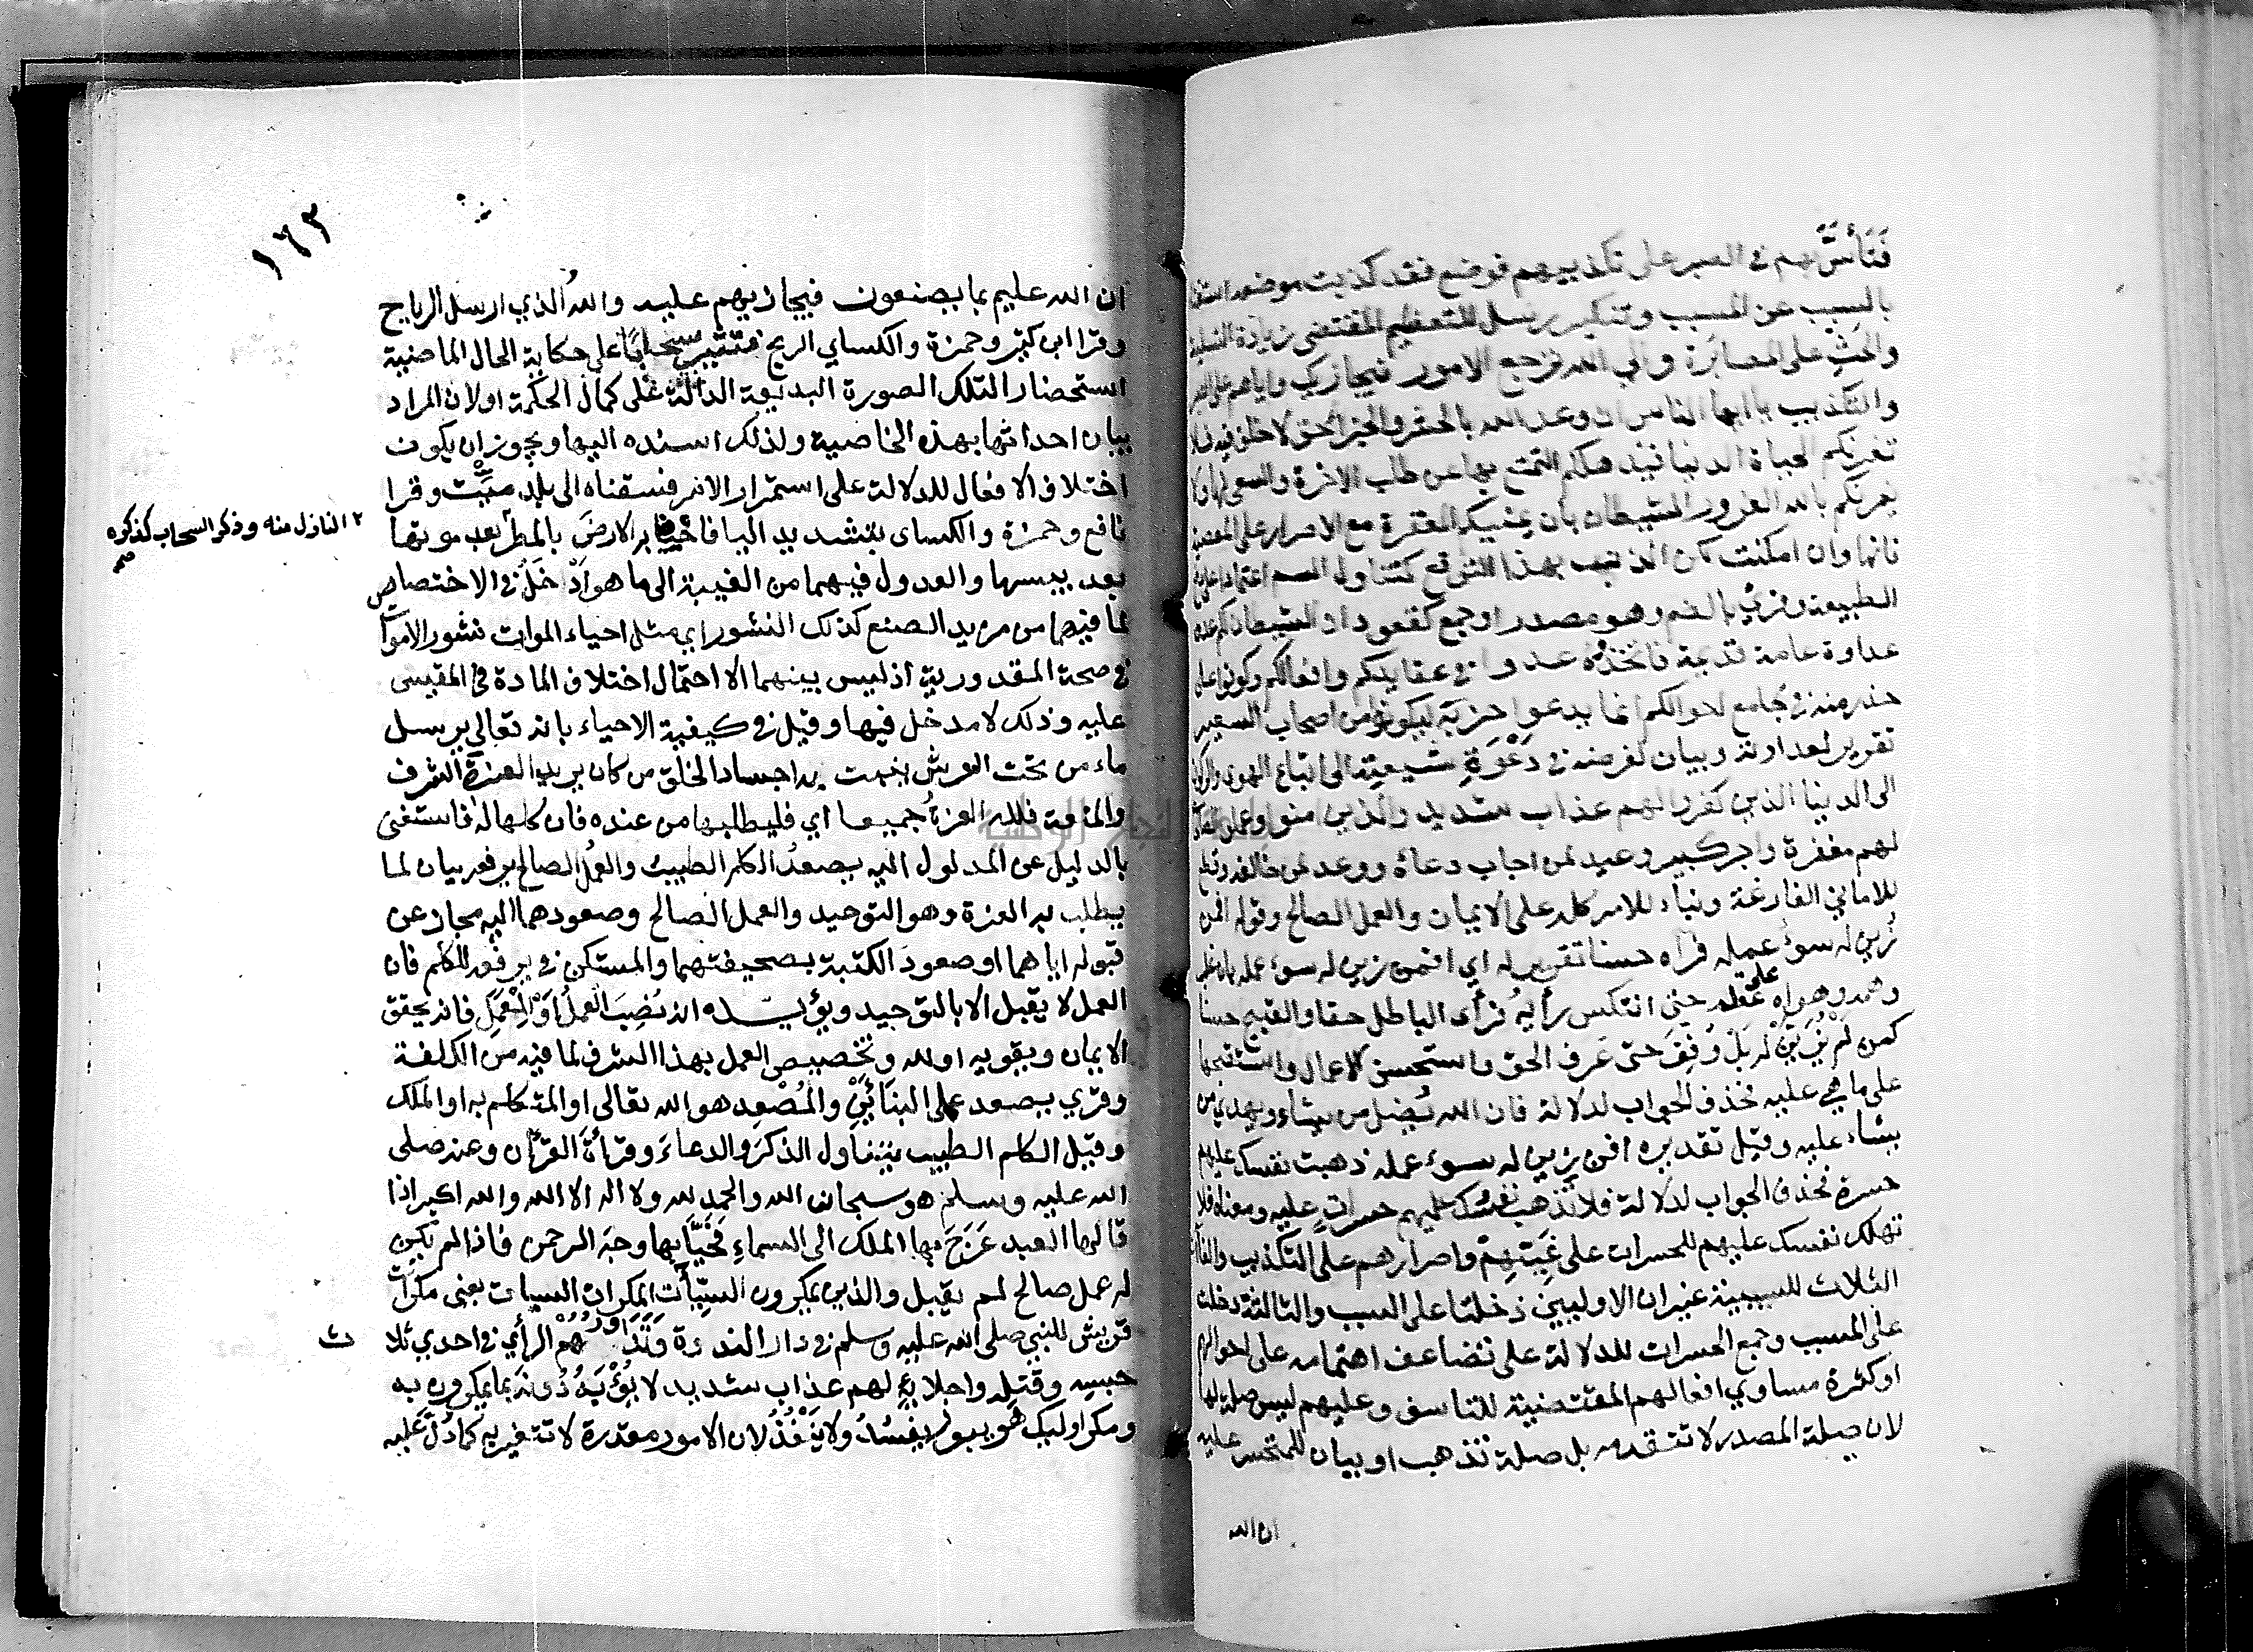 فَتَأَسَّ بهم في الصبر على تكذيبهم فوضع فقد كذبت موضعه استغنا
بالسبب عن المسبب وتنكير رسل للتعظيم المقتضى زيادة التسلية
والحث على المصابرة والي الله ترجع الامور فيجازيك واياهم على الصبر
والتكذيب يا ايها الناس ان وعد الله بالحشر والجزا حق لا خلف فيه فلا
تغرنكم الحياة الدنيا فيذهلكم التمتع بها عن طلب الاخرة والسعى لها ولا
يغرنكم بالله الغرور الشيطان بان يمنيكم المغفرة مع الاصرار على المعصية
فانها وان امكنت لكن الذنب بهذا التوقع كتناول السم اعتمادا على دفع
الطبيعة وقرئ بالضم وهو مصدر او جمع كقعود ان الشيطان لكم عدو
عداوة عامة قديمة فاتخذوه عدوا في عقايدكم وافعالكم وكونوا على
حذر منه في مجامع احوالكم انما يدعوا حزبه ليكونوا من اصحاب السعير
تقرير لعداوته وبيان لغرضه في دَعْوَةِ شيعته الى اتباع الهوى والركون
الى الدنيا الذين كفروا لهم عذاب شديد والذين امنوا وعملوا الصالحات
لهم مغفرة واجر كبير وعيد لمن اجاب دعاءه ووعد لمن خالفه وقطع
للاماني الفارغة وبناء للامر كله على الايمان والعمل الصالح وقوله افمن
زُين له سوء عمله فرآه حسنا تقرير له اي افمن زين له سوء عمله بان غلب
وهمه وهواه على عقله حتى انتكس رأيه فرأى الباطل حقا والقبيح حسنا
كمن لم يُزَيَّنْ له بَلْ وُفِّقَ حتى عَرف الحق واستحسن الاعمال واستقبحها
على ما هي عليه فحذف الجواب لدلالة فان الله يُضل من يشاء ويهدي من
يشاء عليه وقيل تقديره افمن زين له سوء عمله ذهبت نفسك عليهم
حسرة فحذف الجواب لدلالة فلا تذهب نفسك عليهم حسراتٍ عليه ومعناه فلا
تهلك نفسك عليهم للحسرات على غَيِّهِم واصرارهم على التكذيب والفاآت
الثلاث للسببية غير ان الاوليين دخلتا على السبب والثالثة دخلت
على المسبب وجمع الحسرات للدلالة على تضاعف اهتمامه على احوالهم
او كثرة مساوي افعالهم المقتضية للتاسف وعليهم ليس صلة لها
لان صلة المصدر لا تتقدمه بل صلة تذهب او بيان للمتحسر عليه
ان الله
١٦٣
ان الله عليم بما يصنعون فيجازيهم عليه والله الذي ارسل الرياح
وقرا ابن كثير وحمزة والكساي الريح فتثير سحابًا على حكاية الحال الماضية
استحضارا لتلك الصورة البديعة الدالة على كمال الحكمة او لان المراد
بيان احداثها بهذه الخاصية ولذلك اسنده اليها ويجوز ان يكون
اختلاف الافعال للدلالة على استمرار الامر فسقناه الى بلد ميّت وقرا
نافع وحمزة والكساى بتشديد اليا فاحيينا به الارضَ بالمطر بعد موتها
٢ النازل منه وذكر السحاب كذكره
صح
بعد يبسها والعدول فيهما من الغيبة الى ما هو اَدْخَلُ في الاختصاص
لما فيهما من مزيد الصنع كذلك النشور اي مثل احياء الموات نشور الاموات
في صحة المقدورية اذ ليس بينهما الا احتمال اختلاف المادة في المقيس
عليه وذلك لا مدخل فيها وقيل في كيفية الاحياء بانه تعالى يرسل
ماء من تحت العرش ينبت به اجساد الخلق من كان يريد العزة الشرف
والمنعة فلله العزةُ جميعا اي فليطلبها من عنده فان كلها له فاستغنى
بالدليل عن المدلول اليه يصعدُ الكلم الطيبُ والعملُ الصالح يرفعه بيان لما
يطلب به العزة وهو التوحيد والعمل الصالح وصعودهما اليه مجاز عن
قبوله اياهما او صعود الكتبة بصحيفتهما والمستكن في يرفعه للكلم فان
العمل لا يقبل الا بالتوحيد ويؤيده انه نُصِبَ العملُ اَوْ للعمل فانه يحقق
الايمان ويقويه او لله وتخصيص العمل بهذا الشرف لما فيه من الكلفة
وقري يصعد على البنائَيْنِ والمُصْعِد هو الله تعالى او المتكلم به او الملك
وقيل الكلم الطيب يتناول الذكر والدعاءَ وقراءةَ القرآن وعنه صلى
الله عليه وسلم هو سبحان الله والحمد لله ولا اله الا الله والله اكبر اذا
قالها العبد عَرَجَ بها الملك الى السماءِ فَحَيَّا بها وجه الرحمن فاذا لم يكن
له عمل صالح لم يقبل والذين يمكرون السيّآت المكرات السيات يعنى مكرات
قريش للنبي صلى الله عليه وسلم في دار الندوة وَتَدَاوُرُهُمْ الرأي في احدي ثلا
ث
حبسِه وقتلِه واجلائِه لهم عذاب شديد لا يُؤْبَهُ دُونَه بما يمكرون به
ومكر اوليك هو يبور يفسُدُ ولا يَنْفُذُ لان الامور مقدرة لا تتغير به كما دَلَّ عليه